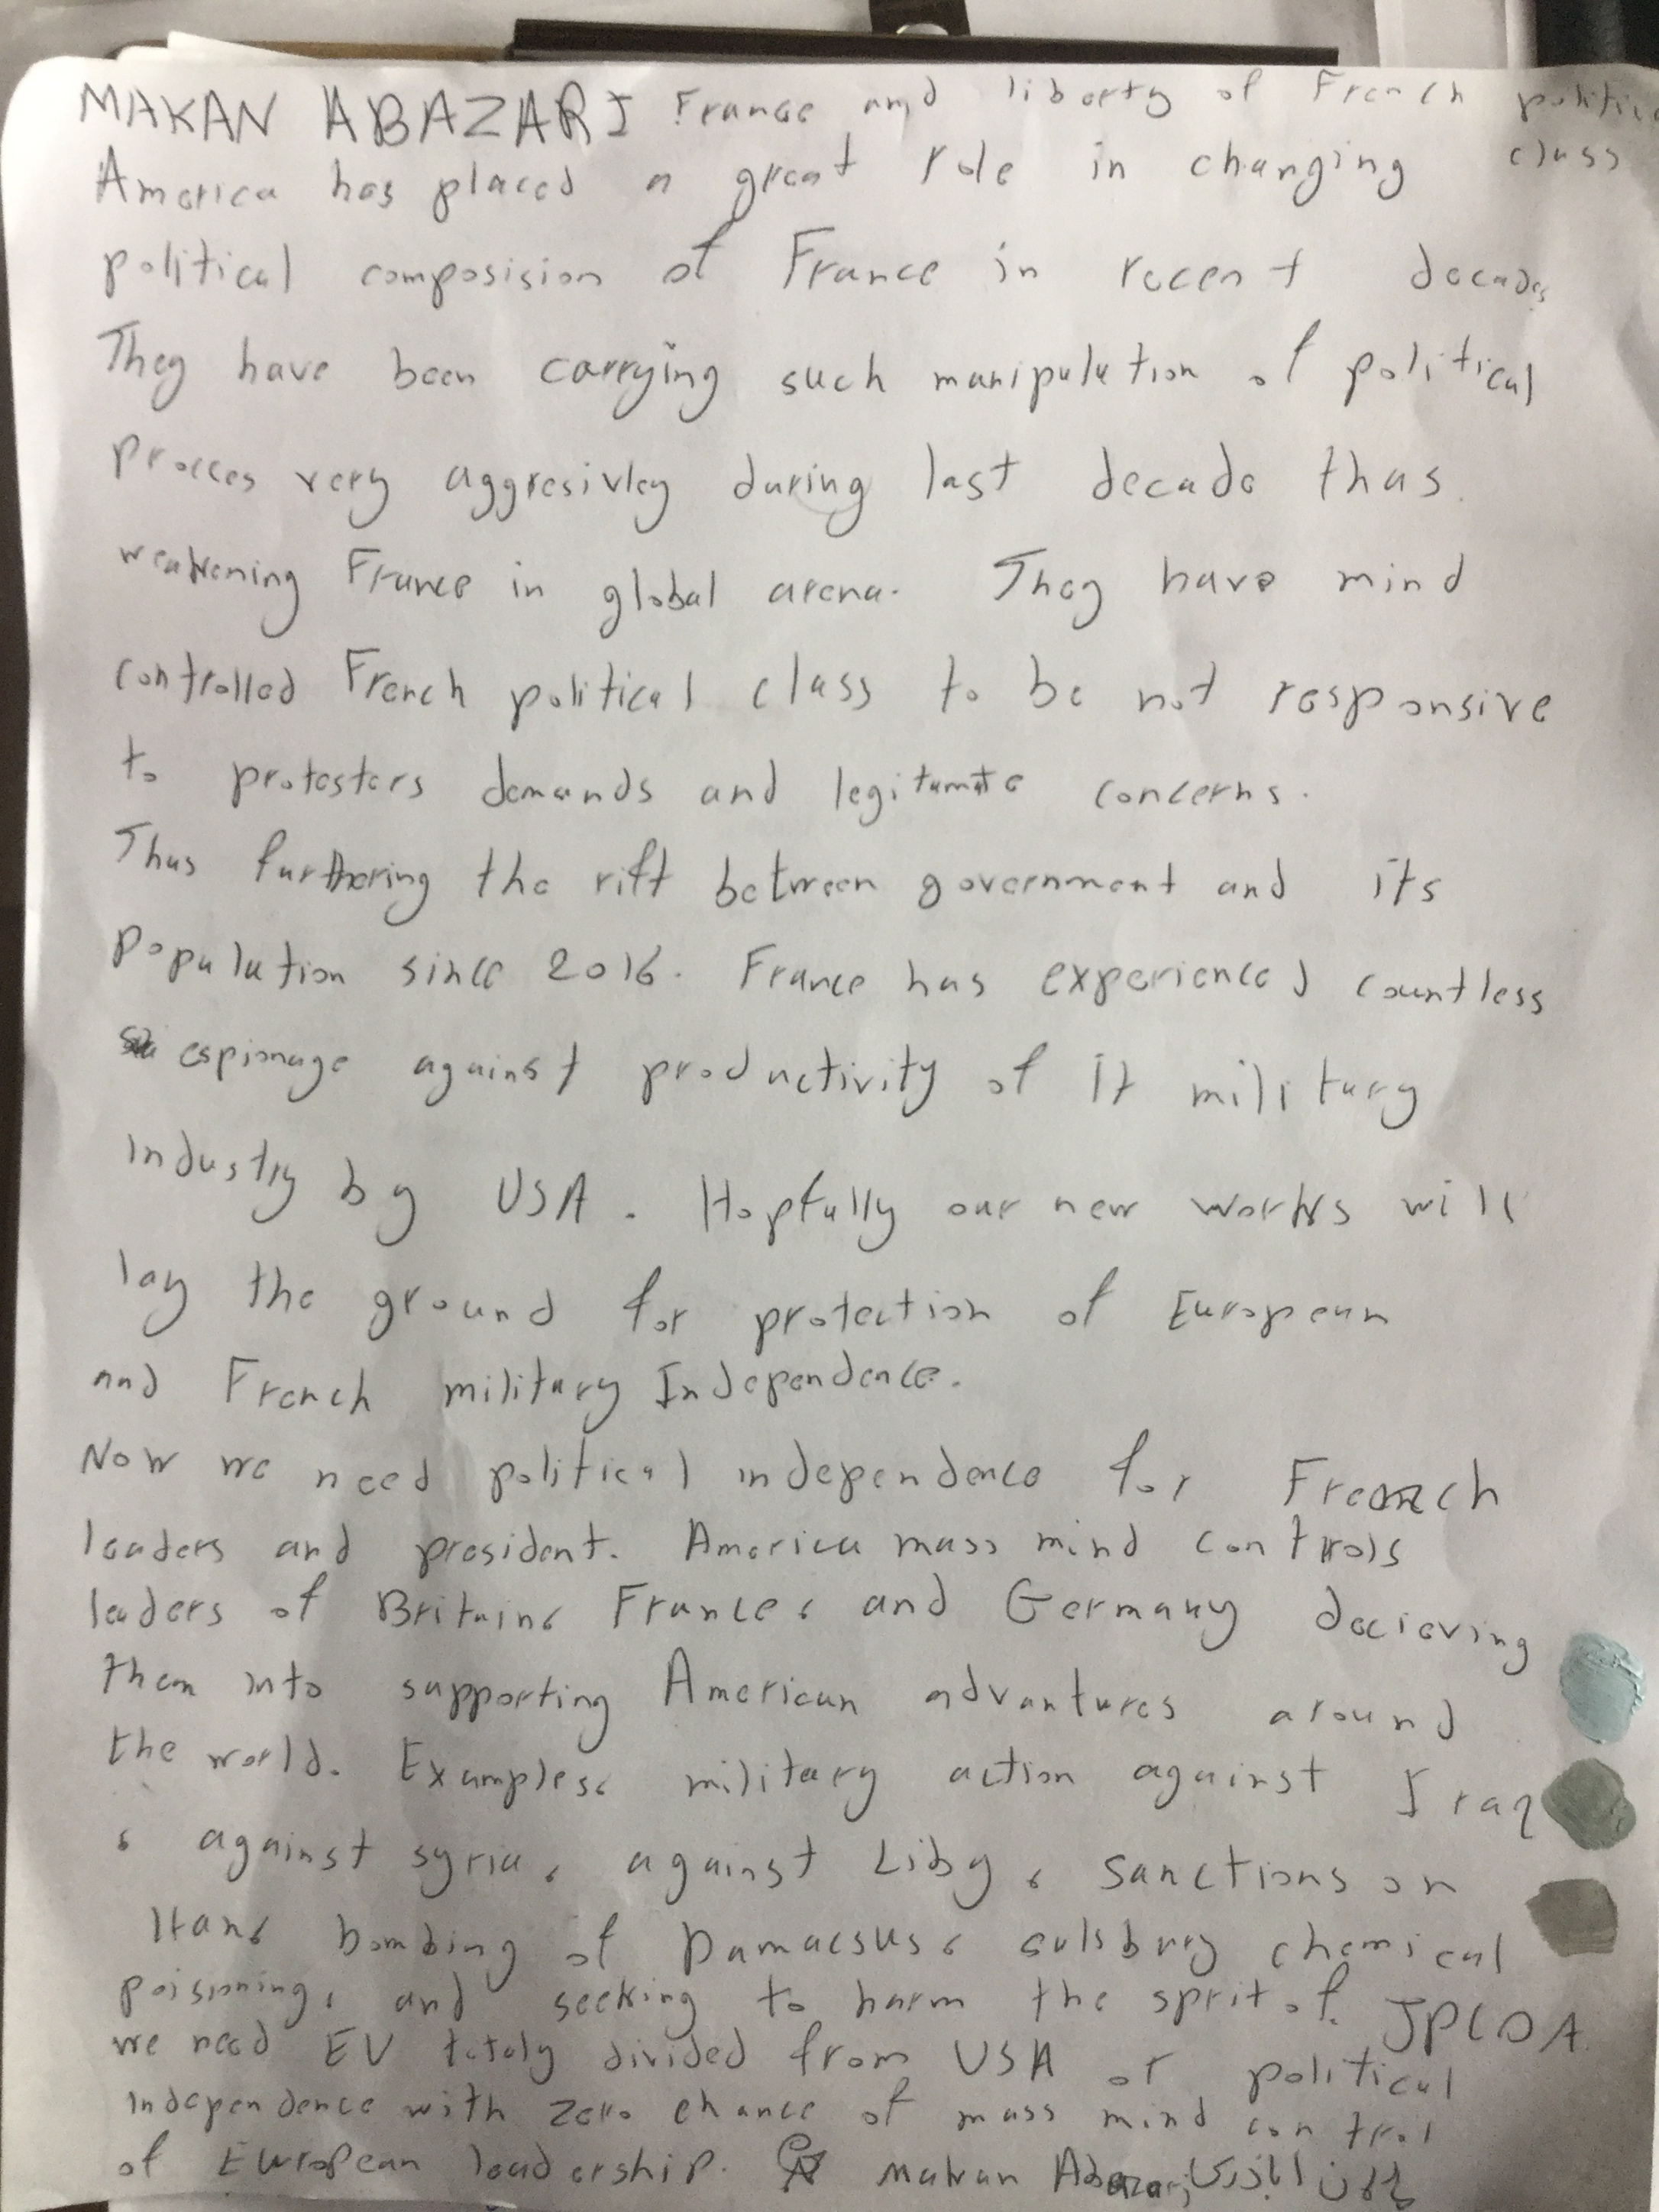 MAKAN ABAZARI France and liberty of French politic
class
America has placed a great role in changing
political composision of France in recent decades
They have been carrying such manipulation of political
procces very aggresivley during last decade thus
weakening France in global arena. They have mind
controlled French political class to be not responsive
to protesters demands and legitamate concerns.
Thus furthering the rift between government and its
population since 2016. France has experienced countless
espionage against productivity of It military
industry by USA. Hopfully our new works will
lay the ground for protection of European
and French military Independence.
Now we need political independence for French
leaders and president. America mass mind controls
leaders of Britain, France, and Germany decieving
them into supporting American advantures around
the world. Examples, military action against Iraq
, against syria, against Liby, sanctions on
Iran, bombing of Damacsus, sulsbury chemical
poisioning, and seeking to harm the sprit of JPCOA.
we need EU totoly divided from USA or political
independence with zero chance of mass mind control
of European leadership. Makan Abazari ماکان اباذری